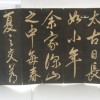 太古日長
如小年
余家深山
之中每春
夏之交蒼